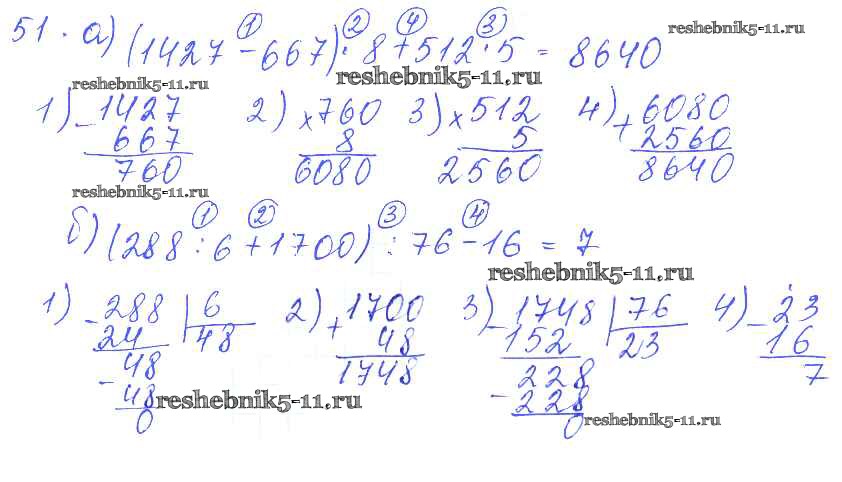 51. а) (1427 - 667) · 8 + 512 · 5 = 8640
① ② ④ ③
reshebnik5-11.ru
reshebnik5-11.ru
reshebnik5-11.ru
1) - 1427
667
760
2) × 760
8
6080
3) × 512
5
2560
4) + 6080
2560
8640
reshebnik5-11.ru
① ② ③ ④
б) (288 : 6 + 1700) : 76 - 16 = 7
reshebnik5-11.ru
1) - 288 | 6
24 | 48
- 48
48
0
2) + 1700
48
1748
3) - 1748 | 76
152 | 23
- 228
228
0
4) - 23
16
7
reshebnik5-11.ru
reshebnik5-11.ru